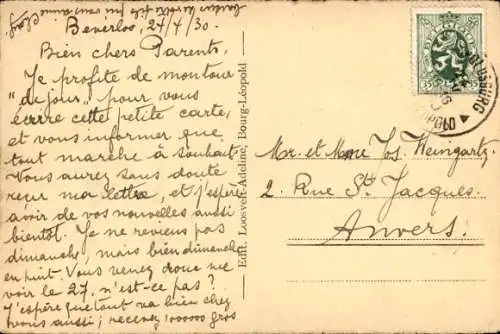 Beverloo, 24/4/30.
Bien chers Parents,
Je profite de mon tour
"de jour" pour vous
écrire cette petite carte,
et vous informer que
tout marche à souhait.
Vous aurez sans doute
reçu ma lettre, et j'espère
avoir de vos nouvelles aussi
bientôt. Je ne reviens pas
dimanche, mais bien dimanche
en huit. Vous venez donc me
voir le 27, n'est-ce pas?
J'espère que tout va bien chez
vous aussi; recevez 100000 gros
baisers de votre fils qui vous aime
Edit. Loosveldt-Adeline, Bourg-Léopold
BELGIQUE
35
35
BURG
Mr. et Mme Jos. Weingartz
2. Rue St Jacques.
Anvers.